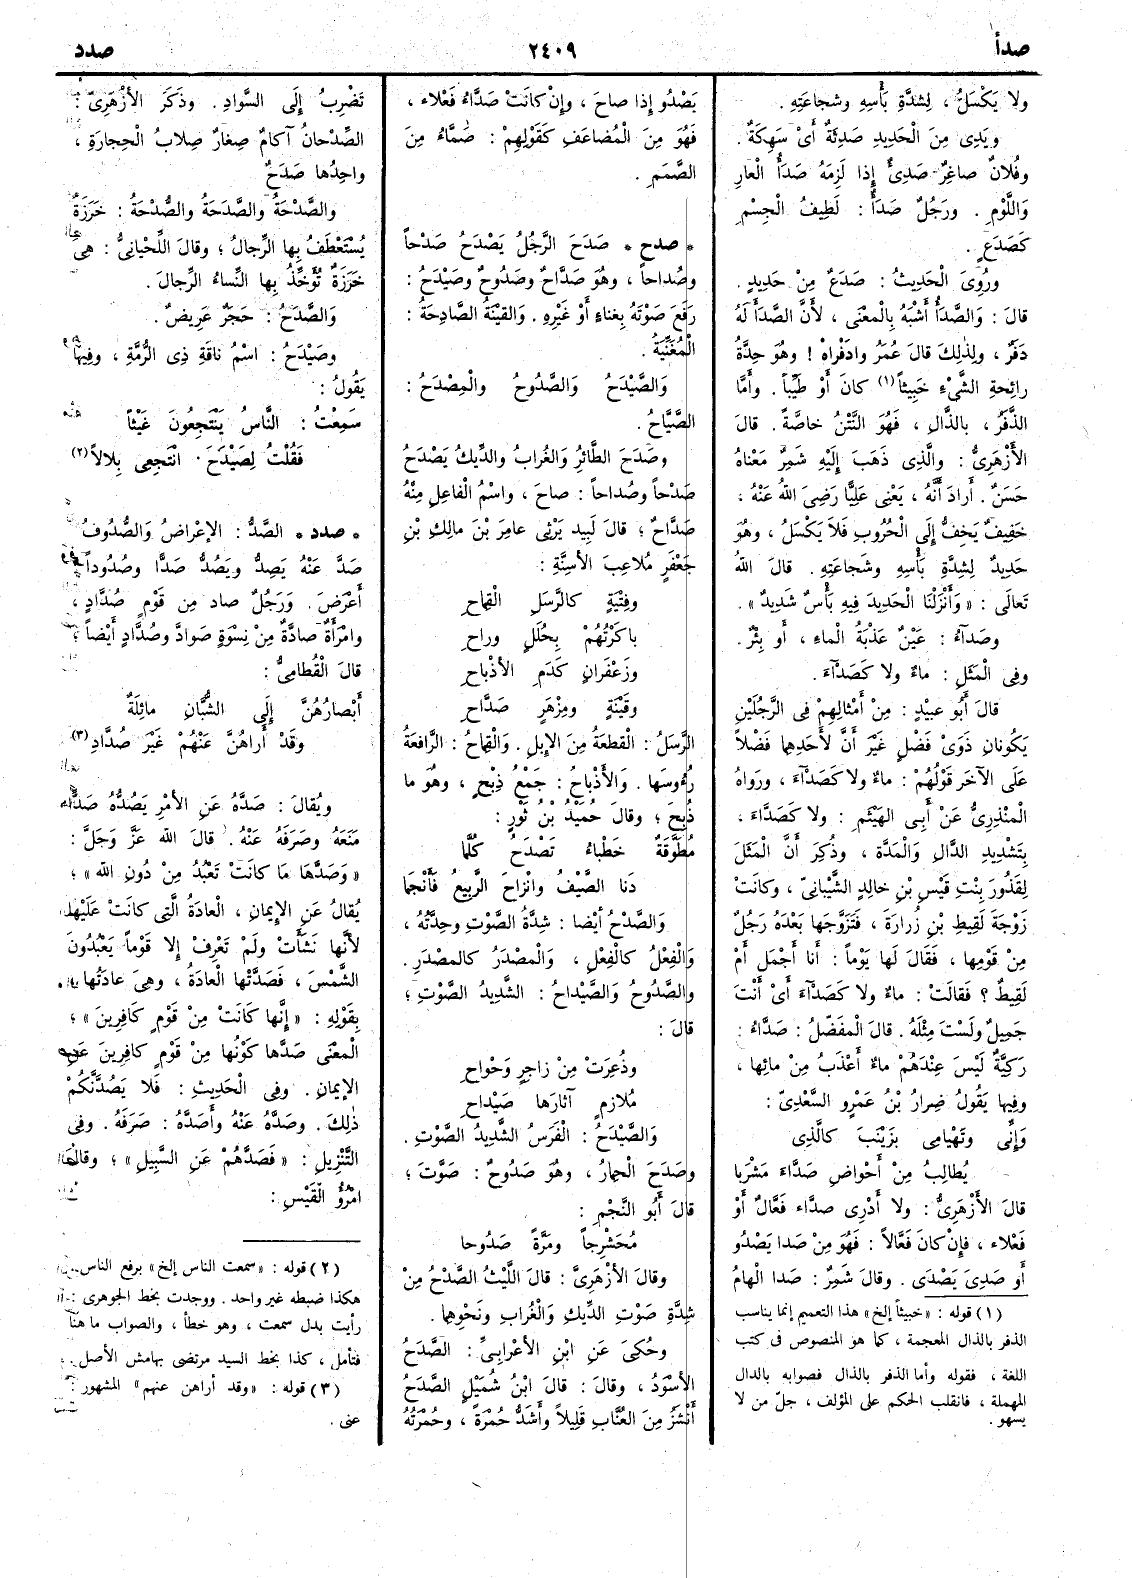 صدأ
٢٤٠٩
صدد
ولا يَكْسَلُ ، لِشدَّةِ بَأْسِهِ وشجاعَتِهِ .
ويَدِى مِنَ الْحَدِيدِ صَدِئَةٌ أَىْ سَهِكَةٌ .
وفُلانٌ صاغِرٌ صَدِئٌ إِذا لَزِمَهُ صَدَأُ الْعارِ
وَاللَّوْمِ . ورَجُلٌ صَدَأٌ : لَطِيفُ الْجِسْمِ
كَصَدَعٍ .
ورُوِىَ الْحَدِيثُ : صَدَعٌ مِنْ حَدِيدٍ .
قالَ : وَالصَّدَأُ أَشْبَهُ بِالْمَعْنَى ، لأَنَّ الصَّدَأَ لَهُ
دَفَرٌ ، ولِذٰلِكَ قالَ عُمَرُ وادَفْراهْ ! وهُوَ حِدَّةُ
رائِحةِ الشَّىْءِ خَبِيثاً (١) كانَ أَوْ طَيِّباً . وأَمَّا
الذَّفَرُ ، بِالذَّالِ ، فَهُوَ النَّتْنُ خاصَّةً . قالَ
الأَزْهَرِىُّ : والَّذِى ذَهَبَ إِلَيْهِ شَمِرٌ مَعْناهُ
حَسَنٌ . أَرادَ أَنَّهُ ، يَعْنِى عَلِيًّا رَضِىَ اللهُ عَنْهُ ،
خَفِيفٌ يَخِفُّ إِلَى الْحُرُوبِ فَلا يَكْسَلُ ، وهُوَ
حَدِيدٌ لِشِدَّةِ بَأْسِهِ وشَجاعَتِهِ . قالَ اللهُ
تَعالَى : « وَأَنْزَلْنَا الْحَدِيدَ فِيهِ بَأْسٌ شَدِيدٌ » .
وصَدَآءُ : عَيْنٌ عَذْبَةُ الْماءِ ، أَو بِئْرٌ .
وفِى الْمَثَلِ : ماءٌ ولا كَصَدَّآءَ .
قالَ أَبُو عبيْدٍ : مِنْ أَمْثالِهِمْ فِى الرَّجُلَيْنِ
يَكُونانِ ذَوَىْ فَضْلٍ غَيْرَ أَنَّ لأَحَدِهِما فَضْلاً
عَلَى الآخَرِ قَوْلُهُمْ : ماءٌ ولا كَصَدَّآءَ ، ورَواهُ
الْمُنْذِرِىُّ عَنْ أَبِى الهَيْثَمِ : ولا كَصَدَّاءَ ،
بِتَشْدِيدِ الدَّالِ وَالْمَدَّةِ ، وذُكِرَ أَنَّ الْمَثَلَ
لِقَذُورَ بِنْتِ قَيْسِ بْنِ خالِدٍ الشَّيْبانِىِّ ، وكانَتْ
زَوْجَةَ لَقِيطِ بْنِ زُرارَةَ ، فَتَزَوَّجَها بَعْدَهُ رَجُلٌ
مِنْ قَوْمِها ، فَقَالَ لَها يَوْماً : أَنا أَجْمَلُ أَمْ
لَقِيطٌ ؟ فَقالَتْ : ماءٌ ولا كَصَدَّآءَ أَىْ أَنْتَ
جَمِيلٌ ولَسْتَ مِثْلَهُ . قالَ الْمفَضَّلُ : صَدَّاءُ :
رَكِيَّةٌ لَيْسَ عِنْدَهُمْ ماءٌ أَعْذَبُ مِنْ مائِها ،
وفِيها يَقُولُ ضِرارُ بْنُ عَمْرٍو السَّعْدِىُّ :
وَإِنِّى وتَهْيامِى بِزَيْنَبَ كالَّذِى
يُطالِبُ مِنْ أَحْواضِ صَدَّاءَ مَشْرَبا
قالَ الأَزْهَرِىُّ : ولا أَدْرِى صَدَّاء فَعَّالٌ أَوْ
فَعْلاء ، فَإِنْ كانَ فَعَّالاً : فَهُوَ مِنْ صَدا يَصْدُو
أَو صَدِىَ يَصْدَى . وقالَ شَمِرٌ : صَدا الْهامُ
(١) قوله : « خبيثاً إلخ » هذا التعميم إنما يناسب
الذفر بالذال المعجمة ، كما هو المنصوص فى كتب
اللغة ، فقوله وأما الذفر بالذال فصوابه بالدال
المهملة ، فانقلب الحكم على المؤلف ، جلّ من لا
يسهو .
يَصْدُو إِذا صاحَ ، وإِنْ كانَتْ صَدَّاءُ فَعْلاء ،
فَهُوَ مِنَ الْمُضاعَفِ كَقَوْلِهِمْ : صَمَّاءُ مِنَ
الصَّمَمِ .
* صدح * صَدَحَ الرَّجُلُ يَصْدَحُ صَدْحاً
وصُداحاً ، وهُوَ صَدَّاحٌ وصَدُوحٌ وصَيْدَحٌ :
رَفَعَ صَوْتَهُ بِغناءٍ أَوْ غَيْرِهِ . وَالقَيْنَةُ الصَّادِحَةُ :
الْمُغَنِّيَةُ .
وَالصَّيْدَحُ وَالصَّدُوحُ والْمِصْدَحُ :
الصَّيَّاحُ .
وصَدَحَ الطَّائِرُ وَالغُرابُ والدِّيكُ يَصْدَحُ
صَدْحاً وصُداحاً : صاحَ ، واسْمُ الْفاعِلِ مِنْهُ
صَدَّاحٌ ؛ قالَ لَبِيد يَرْثِى عامِرَ بْنَ مالِكِ بْنِ
جَعْفَرٍ مُلاعِبَ الأَسِنَّةِ :
وفِتْيَةٍ كالرَّسَلِ الْقِماحِ
باكَرْتُهُمْ بِحُلَلٍ وراحِ
وزَعْفَرانٍ كَدَمِ الأَذْباحِ
وقَيْنَةٍ ومِزْهَرٍ صَدَّاحِ
الرَّسَلُ : الْقطعَةُ مِنَ الإِبِلِ . وَالْقِماحُ : الرَّافِعَةُ
رُءُوسَها . وَالأَذْباحُ : جَمْعُ ذِبْحٍ ، وهُوَ ما
ذُبِحَ ؛ وقالَ حُمَيْدُ بْنُ ثَوْرٍ :
مُطَوَّقَةٌ خَطْباءُ تَصْدَحُ كُلَّما
دَنا الصَّيْفُ وانْزاحَ الرَّبِيعُ فَأَنْجَما
وَالصَّدْحُ أَيْضا : شِدَّةُ الصَّوْتِ وحِدَّتُهُ ،
وَالْفِعْلُ كالْفِعْلِ ، وَالْمصْدَرُ كالمصْدَرِ .
والصَّدُوحُ وَالصَّيْداحُ : الشَّدِيدُ الصَّوْتِ ؛
قالَ :
وذُعِرَتْ مِنْ زاجِرٍ وَحْواحِ
مُلازِمٍ آثارَها صَيْداحِ
وَالصَّيْدَحُ : الْفَرَسُ الشَّدِيدُ الصَّوْتِ .
وصَدَحَ الْحِمارُ ، وهُوَ صَدُوحٌ : صَوَّتَ ؛
قالَ أَبُو النَّجْمِ :
مُحَشْرِجاً ومَرَّةً صَدُوحا
وقالَ الأَزْهَرِىُّ : قالَ اللَّيْثُ الصَّدْحُ مِنْ
شِدَّةِ صَوْتِ الدِّيكِ وَالْغُرابِ ونَحْوِهِما .
وحُكِىَ عَنِ ابْنِ الأَعْرابِىِّ : الصَّدَحُ
الأَسْوَدُ ، وقالَ : قالَ ابْنُ شُمَيْلٍ الصَّدَحُ
أَنْشَزُ مِنَ العُنَّابِ قَلِيلاً وأَشَدُّ حُمْرَةً ، وحُمْرَتُهُ
تَضْرِبُ إِلَى السَّوادِ . وذَكَرَ الأَزْهَرِىُّ :
الصِّدْحانُ آكامٌ صِغارٌ صِلابُ الْحِجارَةِ ،
واحِدُها صَدَحٌ
والصَّدْحَةُ والصَّدَحَةُ والصُّدْحَةُ : خَرَزَةٌ
يُسْتَعْطَفُ بِها الرِّجالُ ؛ وقالَ اللِّحْيانِىُّ : هِىَ
خَرَزَةٌ تُؤَخِّذُ بِها النِّساءُ الرِّجالَ .
وَالصَّدَحُ : حَجَرٌ عَرِيضٌ .
وصَيْدَحُ : اسْمُ ناقَةِ ذِى الرُّمَّةِ ، وفِيها
يَقُولُ :
سَمِعْتُ : النَّاسُ يَنْتَجِعُونَ غَيْثاً
فَقُلْتُ لِصَيْدَحَ انْتَجِعِى بِلالاً (٢)
* صدد * الصَّدُّ : الإِعْراضُ وَالصُّدُوفُ
صَدَّ عَنْهُ يَصِدُّ ويَصُدُّ صَدًّا وصُدُوداً
أَعْرَضَ . وَرَجُلٌ صاد مِن قَوْمٍ صُدَّادٍ ،
وامْرَأَةٌ صادَّةٌ مِنْ نِسْوَةٍ صَوادَّ وصُدَّادٍ أَيْضاً ؛
قالَ الْقُطامِىُّ :
أَبْصارُهُنَّ إِلَى الشُّبَّانِ مائِلَةٌ
وقَدْ أَراهُنَّ عَنْهُمْ غَيْرَ صُدَّادِ (٣)
ويُقالَ : صَدَّهُ عَنِ الأَمْرِ يَصُدُّهُ صَدًّا
مَنَعَهُ وصَرَفَهُ عَنْهُ . قالَ الله عَزَّ وَجَلَّ :
« وَصَدَّهَا مَا كانَتْ تَعْبُدُ مِنْ دُونِ الله » ؛
يُقالُ عَنِ الإِيمانِ ، الْعادَةُ الَّتِى كانَتْ عَلَيْها
لأَنَّها نَشَأَتْ ولَمْ تَعْرِفْ إِلا قَوْماً يَعْبُدُونَ
الشَّمْسَ ، فَصَدَّتْها الْعادَةُ ، وهِىَ عادَتُها ،
بِقَوْلِهِ : « إِنَّها كانَتْ مِنْ قَوْمٍ كافِرِينَ » ؛
الْمعْنَى صَدَّها كَوْنُها مِنْ قَوْمٍ كافِرِينَ عَنِ
الإِيمانِ . وفِى الْحَدِيثِ : فَلا يَصُدَّنَّكُمْ
ذٰلِكَ . وصَدَّهُ عَنْهُ وأَصَدَّهُ : صَرَفَهُ . وفِى
التَّنْزِيلِ : « فَصَدَّهُمْ عَنِ السَّبِيلِ » ؛ وقالَ
امْرُؤُ الْقَيْسِ :
(٢) قوله : « سمعت الناس إلخ » برفع الناس
هكذا ضبطه غير واحد . ووجدت بخط الجوهرى :
رأيت بدل سمعت ، وهو خطأ ، والصواب ما هنا
فتأمل ، كذا بخط السيد مرتضى بهامش الأصل .
(٣) قوله : « وقد أراهن عنهم » المشهور :
عنى .